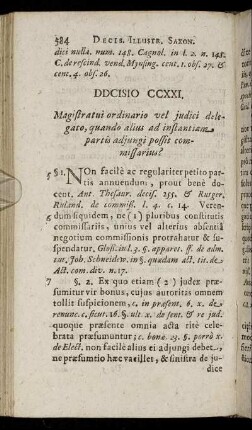 384 DECIS. ILLUSTR. SAXON.
dici nulla. num. 148. Cagnol. in l. 2. n. 148.
C. de rescind. vend. Mynsing. cent. 1. obs. 27. &
cent. 4. obs. 26.
DDCISIO CCXXI.
Magistratui ordinario vel judici dele-
gato, quando alius ad instantiam
partis adjungi possit com-
missarius?
§ 1. NOn facilè ac regulariter petito par-
tis annuendum, prout benè do-
cent. Ant. Thesaur. decis. 235. & Rutger.
Ruland. de commiss. l. 4. c. 14. Veren-
dum siquidem, ne (1) pluribus constitutis
commissariis, unius vel alterius absentiâ
negotium commissionis protrahatur & su-
spendatur, Gloss. ind. §. apparet. ff. de adm.
tut. Joh. Schneidew. in §. quadam act. tit. de
Act. com. div. n. 17.
7 §. 2. Ex quo etiam (2) judex præ-
sumitur vir bonus, cujus autoritas omnem
tollit suspicionem, c. in præsent. 6. x. de
renunc. c. sicut. 16. §. ult. x. de sent. & re jud.
quoque præsente omnia acta ritè cele-
brata præsumuntur; c. bonæ. 23. §. porrò x.
de Elect. non facilè alius ei adjungi debet,
ne præsumtio hæc vacillet, & sinistra de ju-
dice